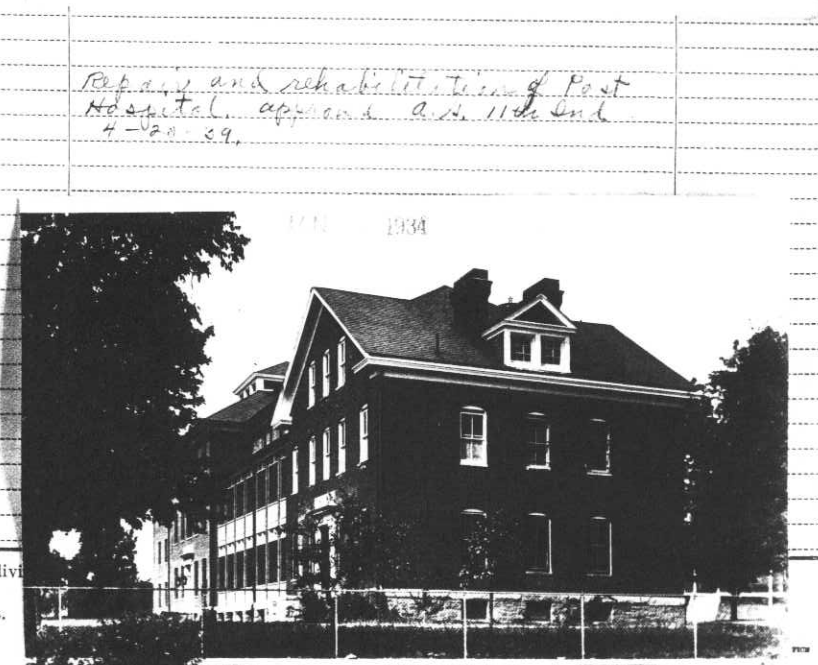 Repair and rehabilitation of Post
Hospital. approved A.S. 11th Ind
4-20-39.
1934
divi